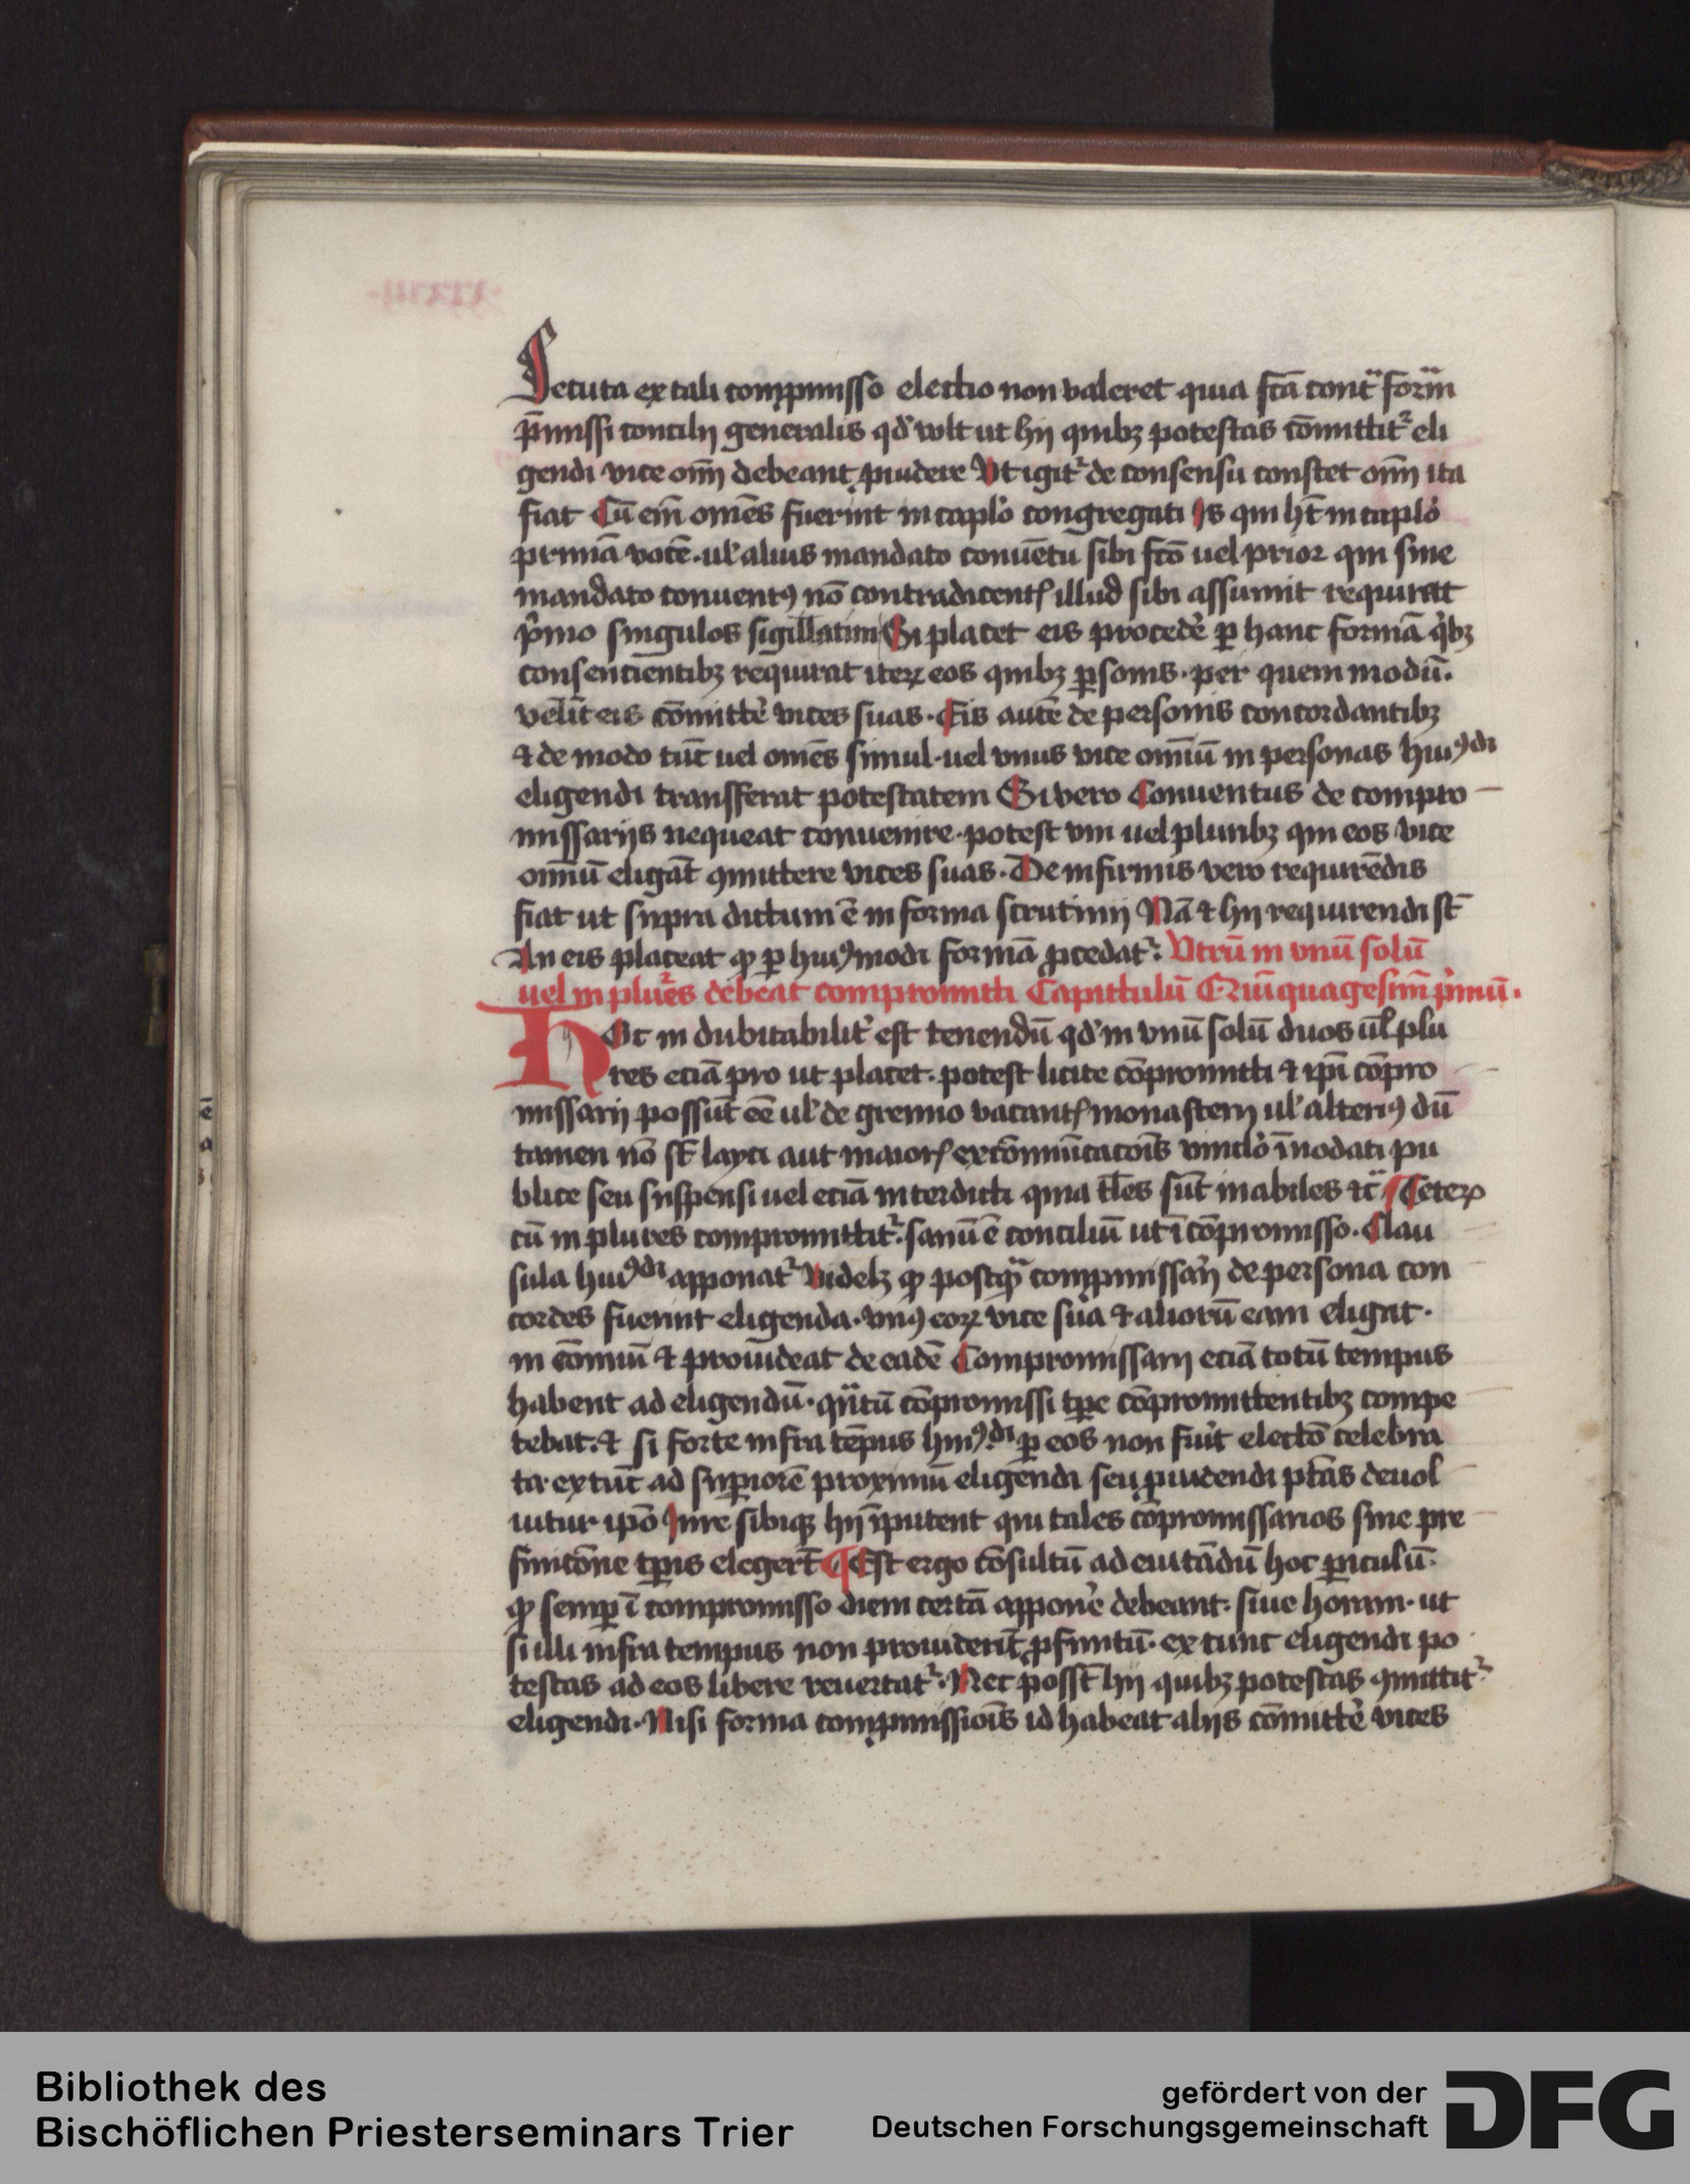 Secuta ex tali comp̱misso electio non valeret quia fcā contͣ formͣ
p̄missi concilij generalis qd' wlt ut hij quibꝫ potestas cōmittit᷑ eli
gendi vice om̄ debeant ꝓuidere Ut igit᷑ de consensu constet om̄ ita
fiat Cū em̄ om̄es fuerint in caplo congregati Is qui h̄t in caplo
primā vocē · ul' alius mandato conuētu sibi fc̄o uel prior qui sine
mandato conuentꝰ nō contradicentꝭ illud sibi assumit requirat
pͥmo singulos sigillatim Si placet eis procedē ꝑ hanc formā qͥbꝫ
consencientibꝫ requirat iteꝝ eos quibꝫ ꝑsonis · per quem modū ·
velīt eis cōmittē vices suas · Eis autē de personis concordantibꝫ
⁊ de modo tūc uel om̄es simul · uel vnus vice omniū in personas huiꝰdi
eligendi transfferat potestatem Si vero Conuentus de compro
missarijs nequeat conuenire · potest vni uel pluribꝫ qui eos vice
omniū eligāt ꝯmittere vices suas · De infirmis vero requirēdis
fiat ut supra dictum ē in forma scrutinij Nā ⁊ hij requirendi st̄
An eis placeat ꝙ ꝑ huiꝰmodi formā ꝓcedat᷑ : Utrū in vnū solū
uel in plures debeat compromitti Capittulū Quīquagesim̄ pͥmū ·
Hoc in dubitabilit' est tenendū qd' in vnū solū duos ūl plu
res eciā pro ut placet · potest licite cōpromitti ⁊ ip̄i cōpro
missarij possūt ēe ul' de gremio vacantꝭ monasterij ul' alteriꝰ dū
tamen nō st̄ layci aut maiorꝭ excōmūicacōis vinclo īnodati pu
blice seu suspensi uel eciā interdicti quia tl̄es sūt inabiles ⁊c̄ Ceteꝝ
cū in plures compromittit᷑ · sanū ē conciliū ut ī cōpromisso · Clau
sula huiꝰdi apponat᷑ videlꝫ ꝙ postqͣ comꝓmissarij de persona con
cordes fuerint eligenda · vnꝰ eoꝝ vice sua ⁊ aliorū eam eligat ·
in cōmuī ⁊ prouideat de eadē Compromissarij eciā totū tempus
habent ad eligendū · qͣtū cōpromissi tꝑe cōpromittentibꝫ compe
tebat · ⁊ si forte infra tēpus huiꝰdi ꝑ eos non fuīt electō celebra
ta · extūc ad suꝑiorē proximū eligendi seu ꝓuidendi ptās deuol
uitur ipō Iure sibiqꝫ hij īputent qui tales cōpromissarios sine pre
finicōne tꝑis elegert̄ ¶ Est ergo cōsultū ad euitādū hoc ꝑiculū ·
ꝙ semꝑ ī compromisso diem certā apponē debeant · siue horam · ut
si illi infra tempus non prouiderīt p̄finitū · extunc eligendi po
testas ad eos libere reuertat᷑ · Nec posst̄ hij quibꝫ potestas ꝯmittit᷑
eligendi · Nisi forma comꝓmissiōis id habeat alijs cōmittē vices
ē
a
Bibliothek des
Bischöflichen Priesterseminars Trier
gefördert von der
Deutschen Forschungsgemeinschaft
DFG